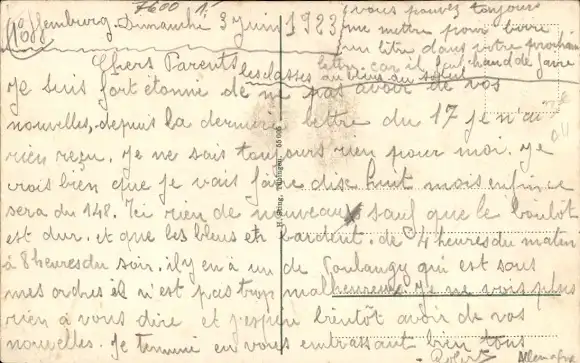 Offenburg. Dimanche 3 Juin 1923
vous pouvez toujours
me mettre pour boire
un litre dans votre prochaine
lettre car il fait chaud de faire
les classes au bleus au soleil
Chers Parents
Je suis fort étonné de ne pas avoir de vos
nouvelles, depuis la dernière lettre du 17 je n'ai
rien reçu. Je ne sais toujours rien pour moi. Je
crois bien que je vais faire dix huit mois enfin ce
sera du 148. Ici rien de nouveau sauf que le boulot
est dur. et que les bleus en bardent. de 4 heures du matin
à 8 heures du soir. il y en a un de Goulangy qui est sous
mes ordres il n'est pas trop malheureux. Je ne vois plus
rien à vous dire et j'espère bientôt avoir de vos
nouvelles. Je termine en vous embrassant bien tous
Robert
Allemagne